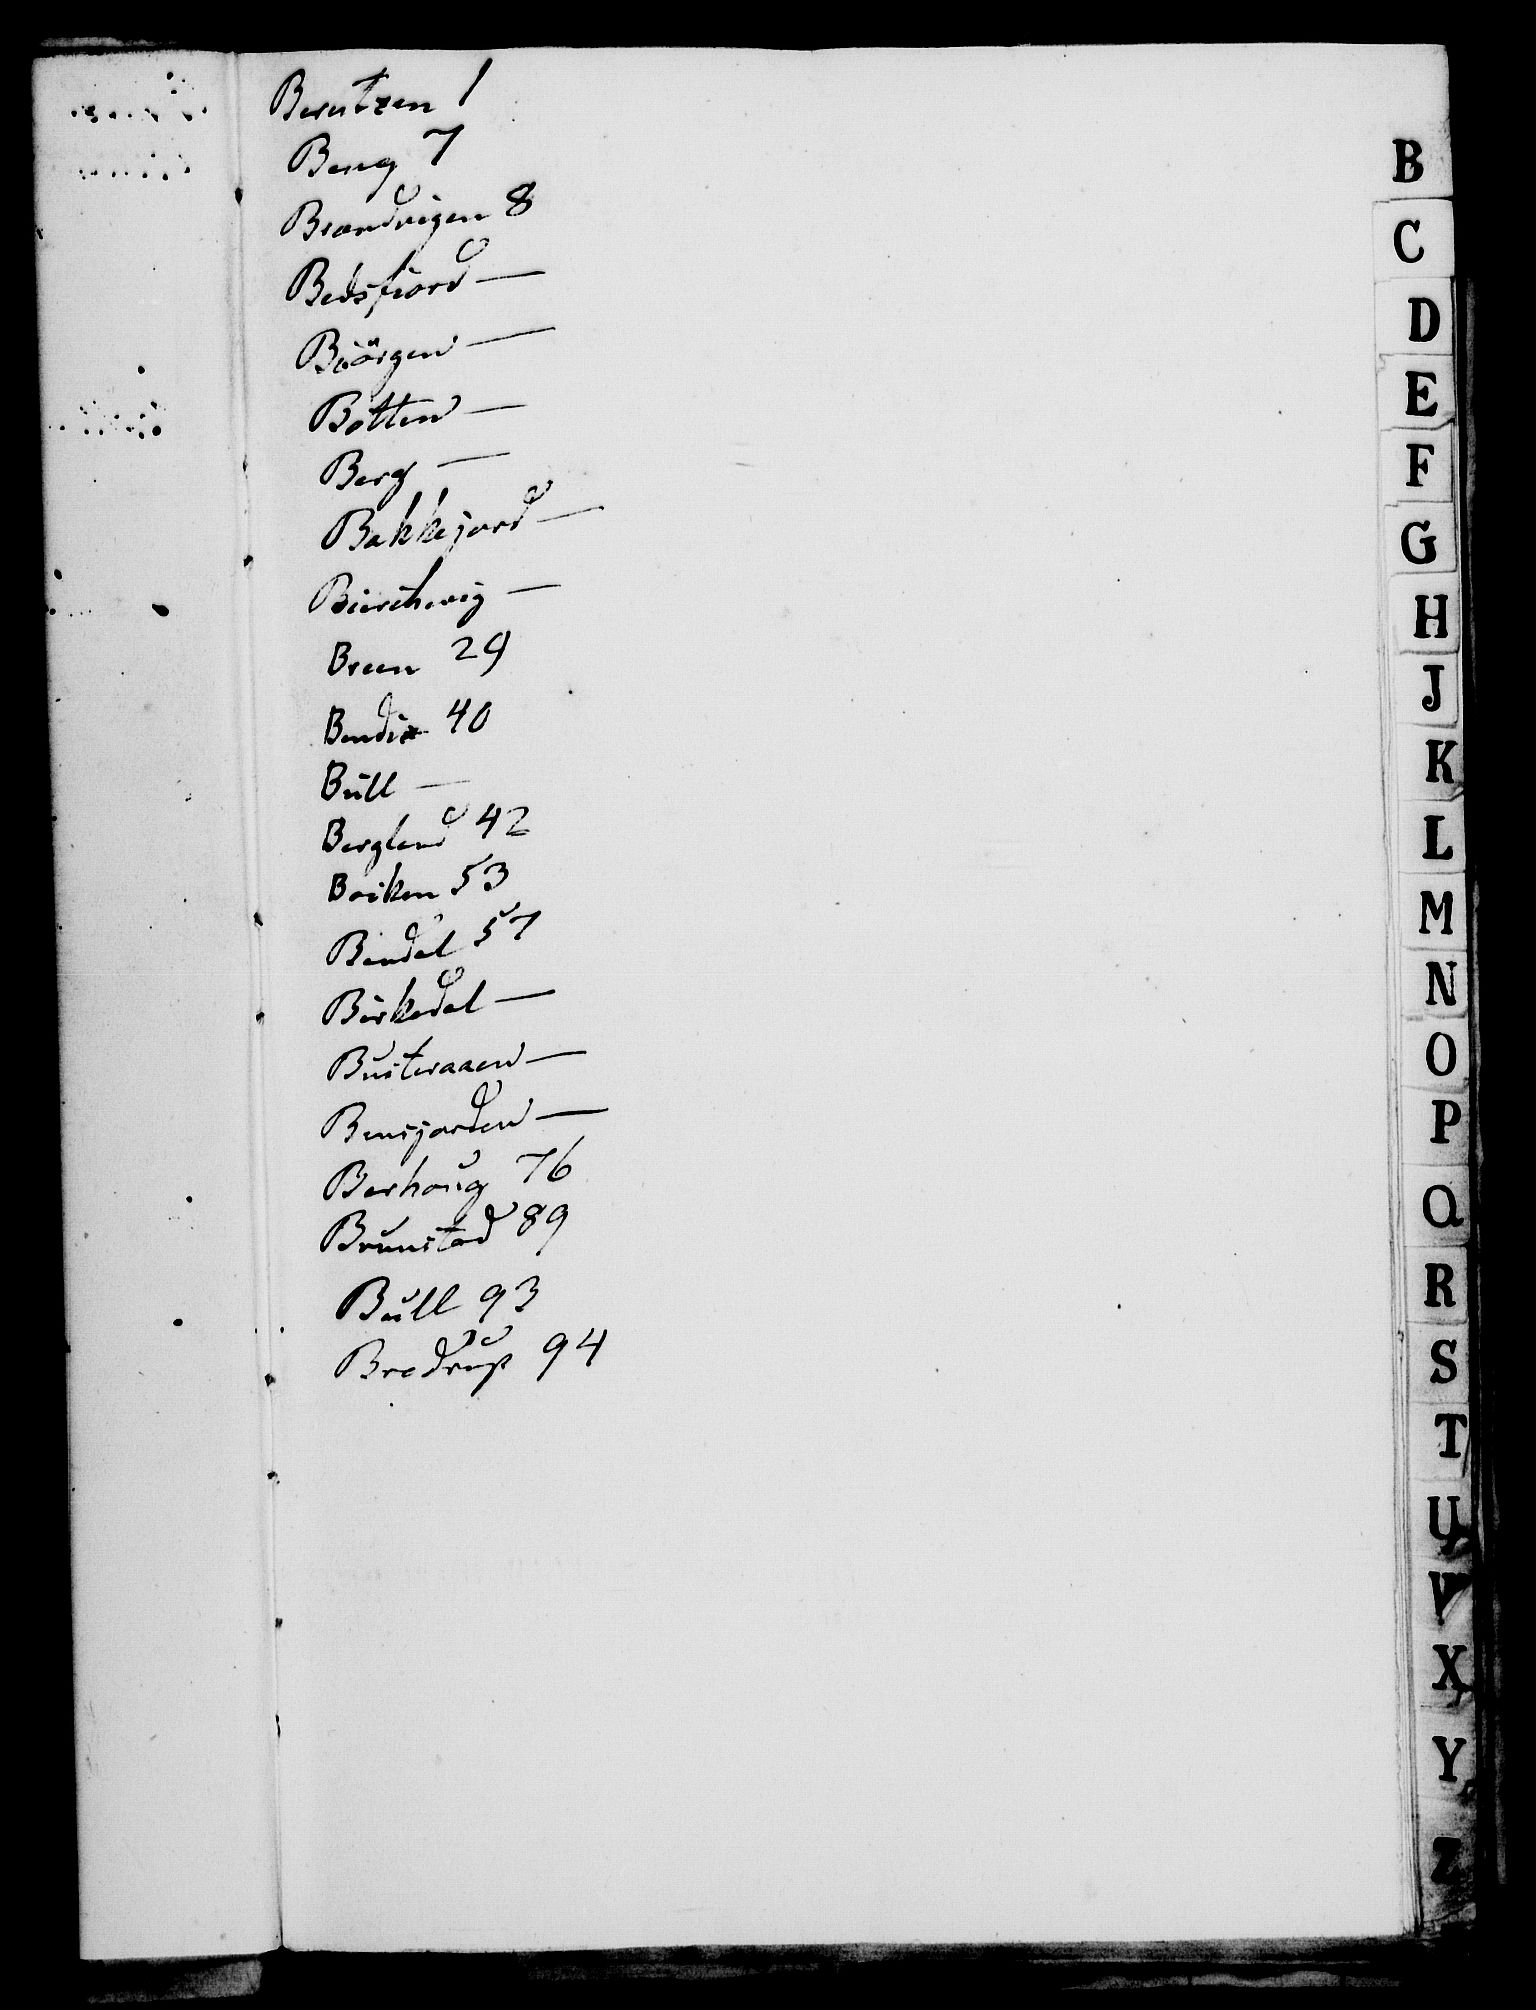 Berntzen 1
Beng 7
Brandvigen 8
Belsfiord —
Biörgen —
Botten —
Berg —
Bakkejord —
—
Breen 29
Bendix 40
Bull —
Berglund 42
53
Bendal 57
Birkedal —
Busteraaen —
Bensjorden —
Berhoug 76
Brunstad 89
Bull 93
Brodrup 94
B
C
D
E
F
G
H
J
K
L
M
N
O
P
Q
R
S
T
U
V
X
Y
Z